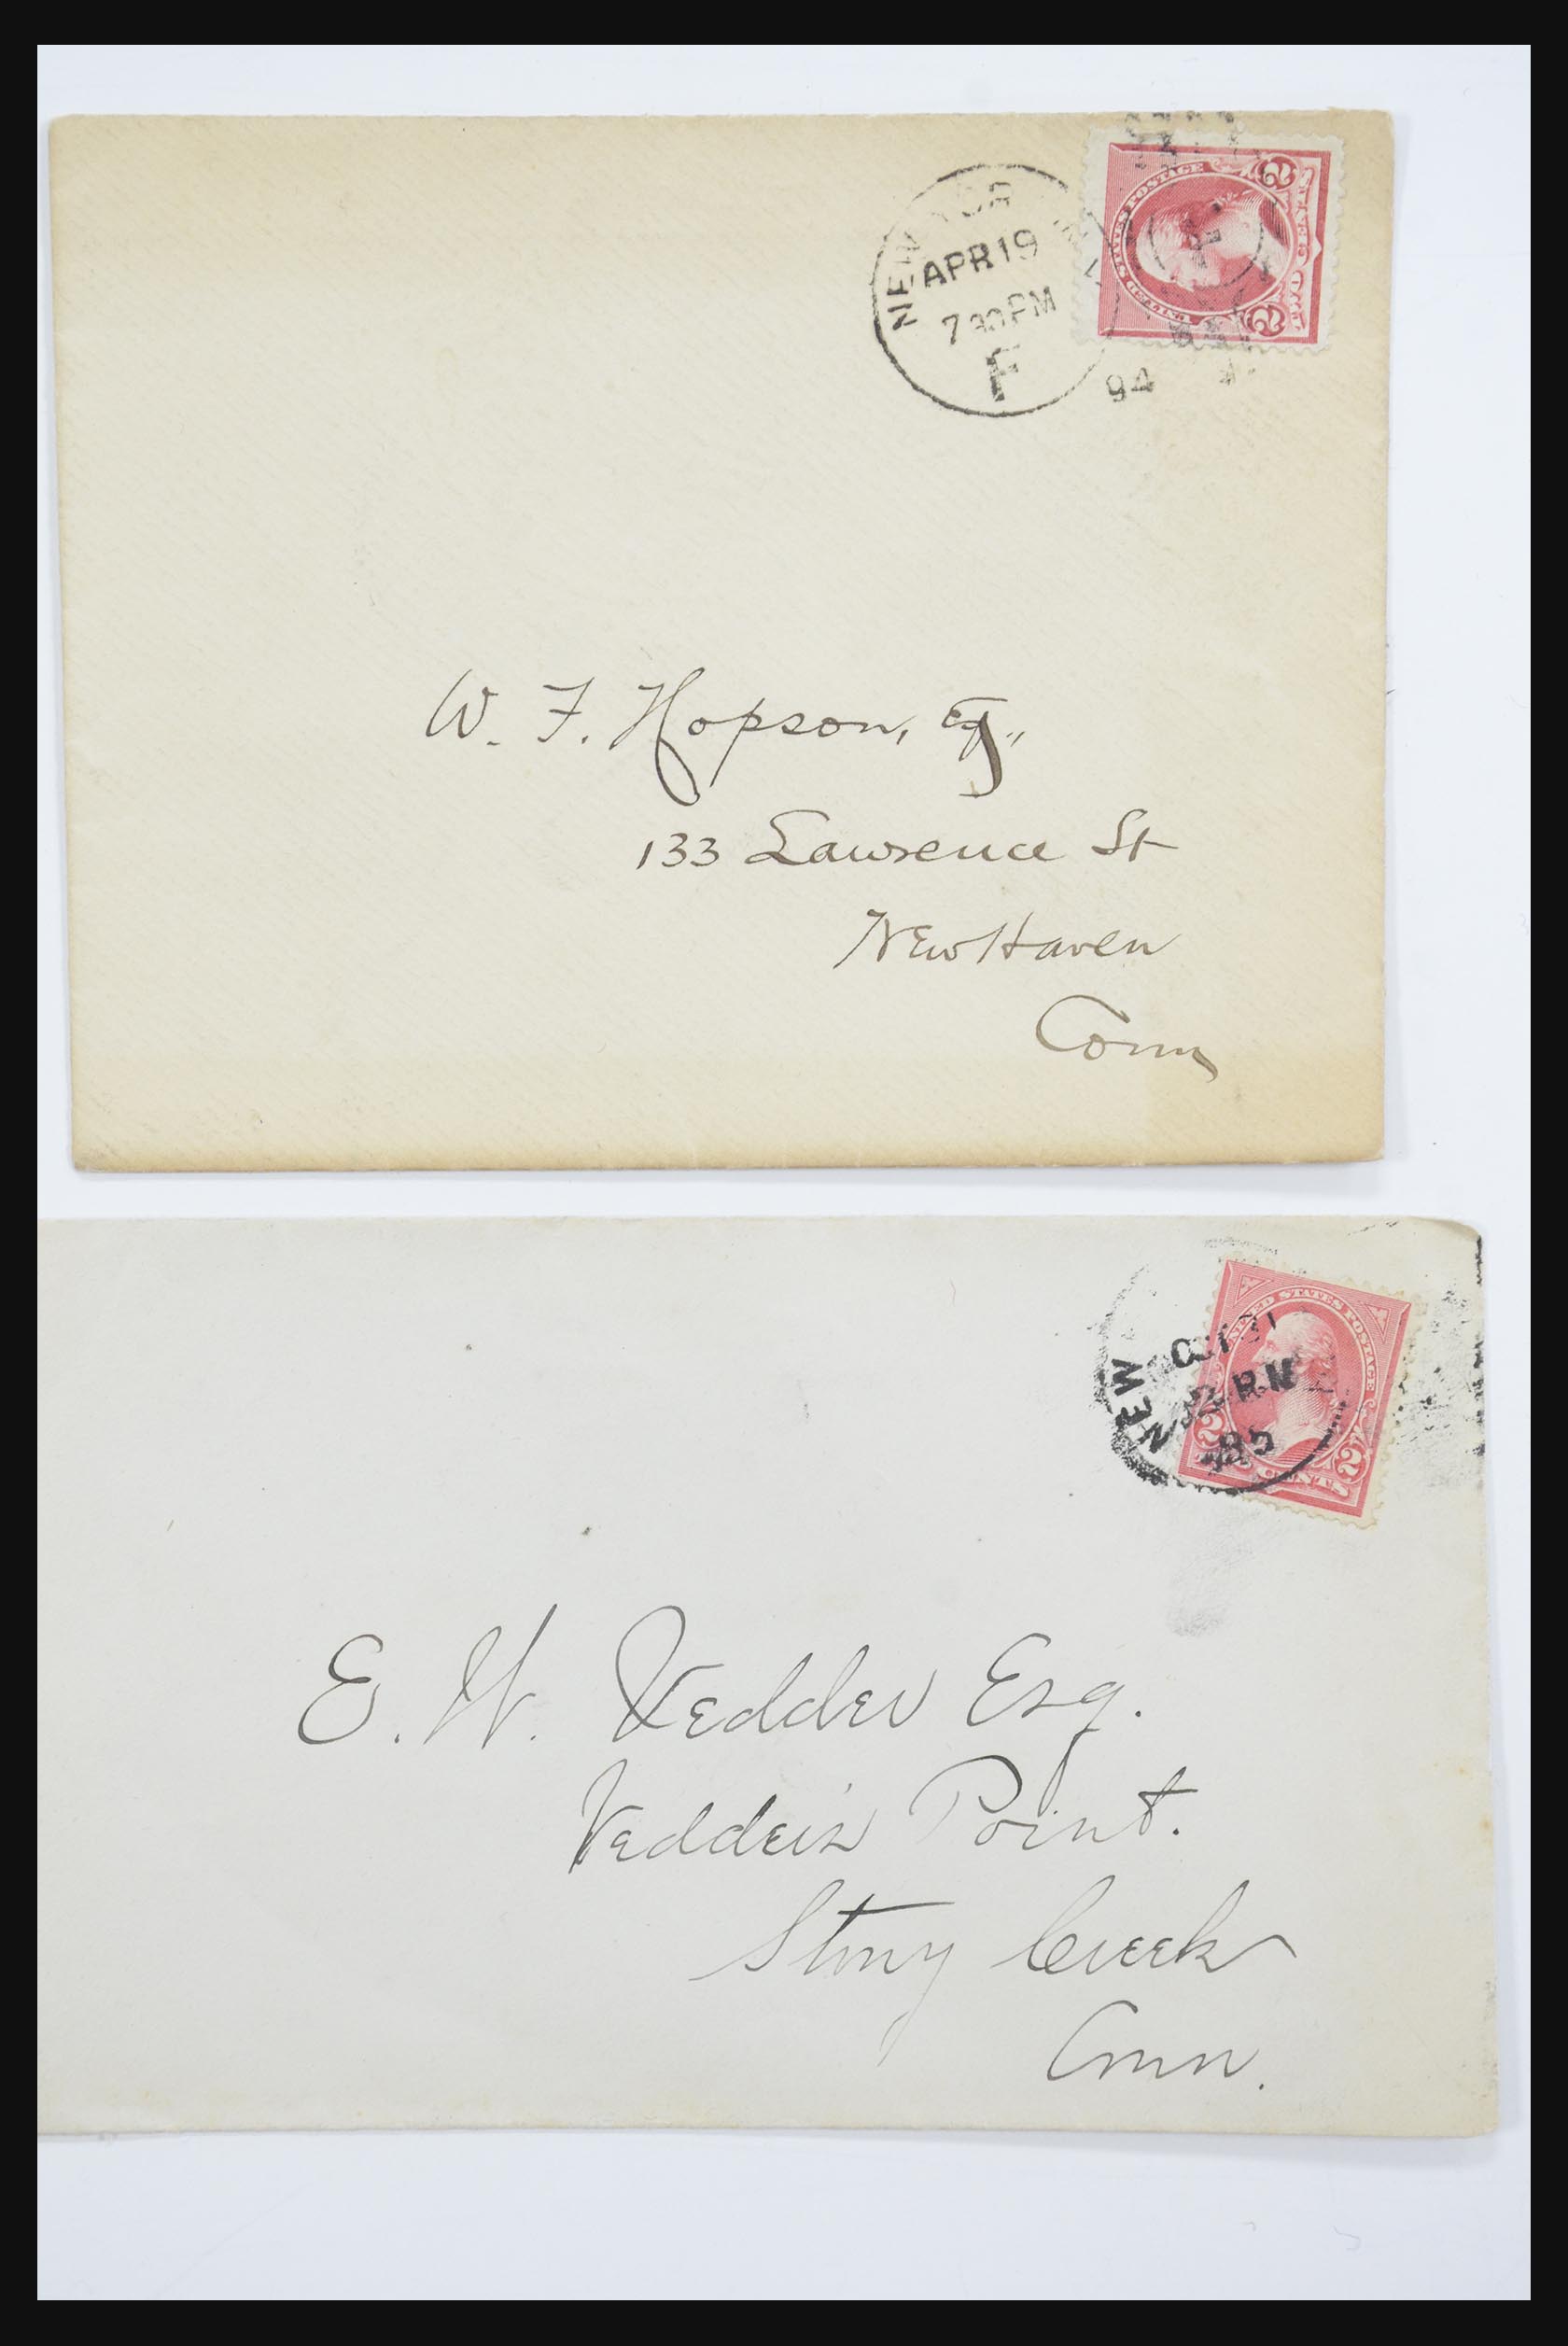 NEW YORK
APR 19
7 30 PM
F
94
UNITED STATES POSTAGE
2 2
TWO CENTS
W. F. Hopson, Esq.,
133 Lawrence St
New Haven
Conn
UNITED STATES POSTAGE
2 CENTS 2
NEW
OCT 31
PM
95
E. W. Vedder Esq.
Vedder's Point.
Stony Creek
Conn.